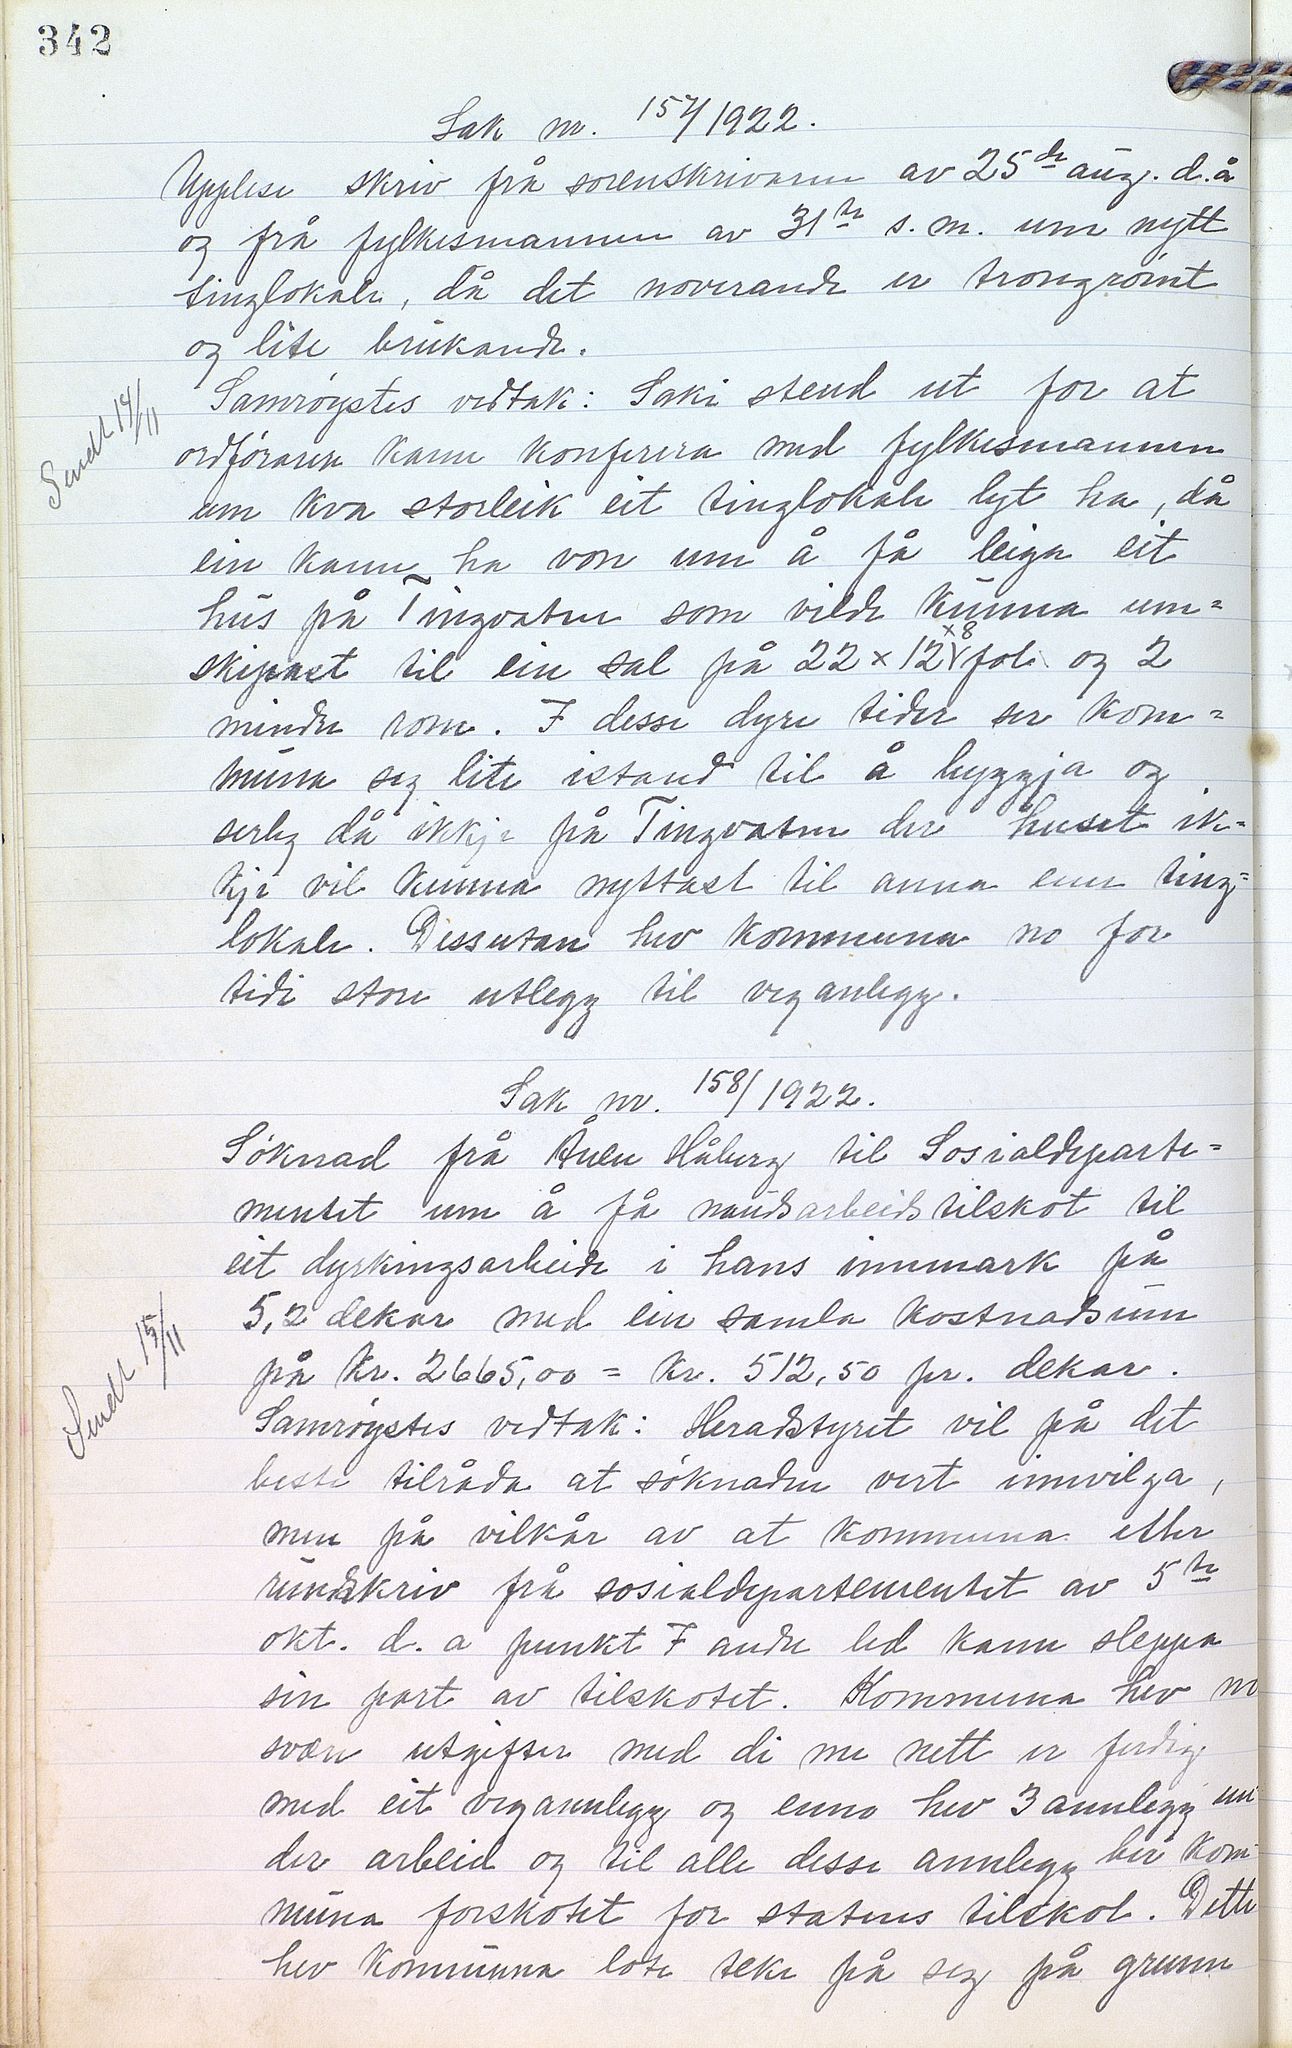 342
Sak nr. 157/1922.
Upplese skriv frå sorenskrivaren av 25de aug. d.å
og frå fylkesmannen av 31te s.m. um nytt
tinglokale, då det noverande er trongrømt
og lite brukande.
Sendt 14/11
Samrøystes vedtak: Saki stend ut for at
ordføraren kann konferera med fylkesmannen
um kva storleik eit tinglokale lyt ha, då
ein kann ha von um å få leiga eit
hus på Tingvatn som vilde kunna um=
skipast til ein sal på 22 x 12 x 8 fot og 2
mindre rom. I desse dyre tider ser kom=
muna seg lite istand til å byggja og
serleg då ikkje på Tingvatn der huset ik=
kje vil kunna nyttast til anna enn ting=
lokale. Dessutan hev kommuna no for
tidi store utlegg til veganlegg.
Sak nr. 158/1922.
Søknad frå Ånen Håberg til Sosialdeparte=
mentet um å få naudsarbeidstilskot til
eit dyrkingsarbeide i hans innmark på
5,2 dekar med ein samla kostnadsum
Sendt 15/11
på kr. 2665,00 = kr. 512,50 pr. dekar.
Samrøystes vedtak: Heradstyret vil på det
beste tilråda at søknaden vert innvilga,
men på vilkår av at kommuna etter
rundskriv frå sosialdepartementet av 5te
okt. d.a punkt I andre led kann sleppa
sin part av tilskotet. Kommuna hev no
svære utgifter med di me nett er ferdig
med eit vegannlegg og enno hev 3 annlegg un
der arbeid og til alle desse annlegg hev kom
muna forskotet for statens tilskot. Dette
hev kommuna lote teke på seg på grunn